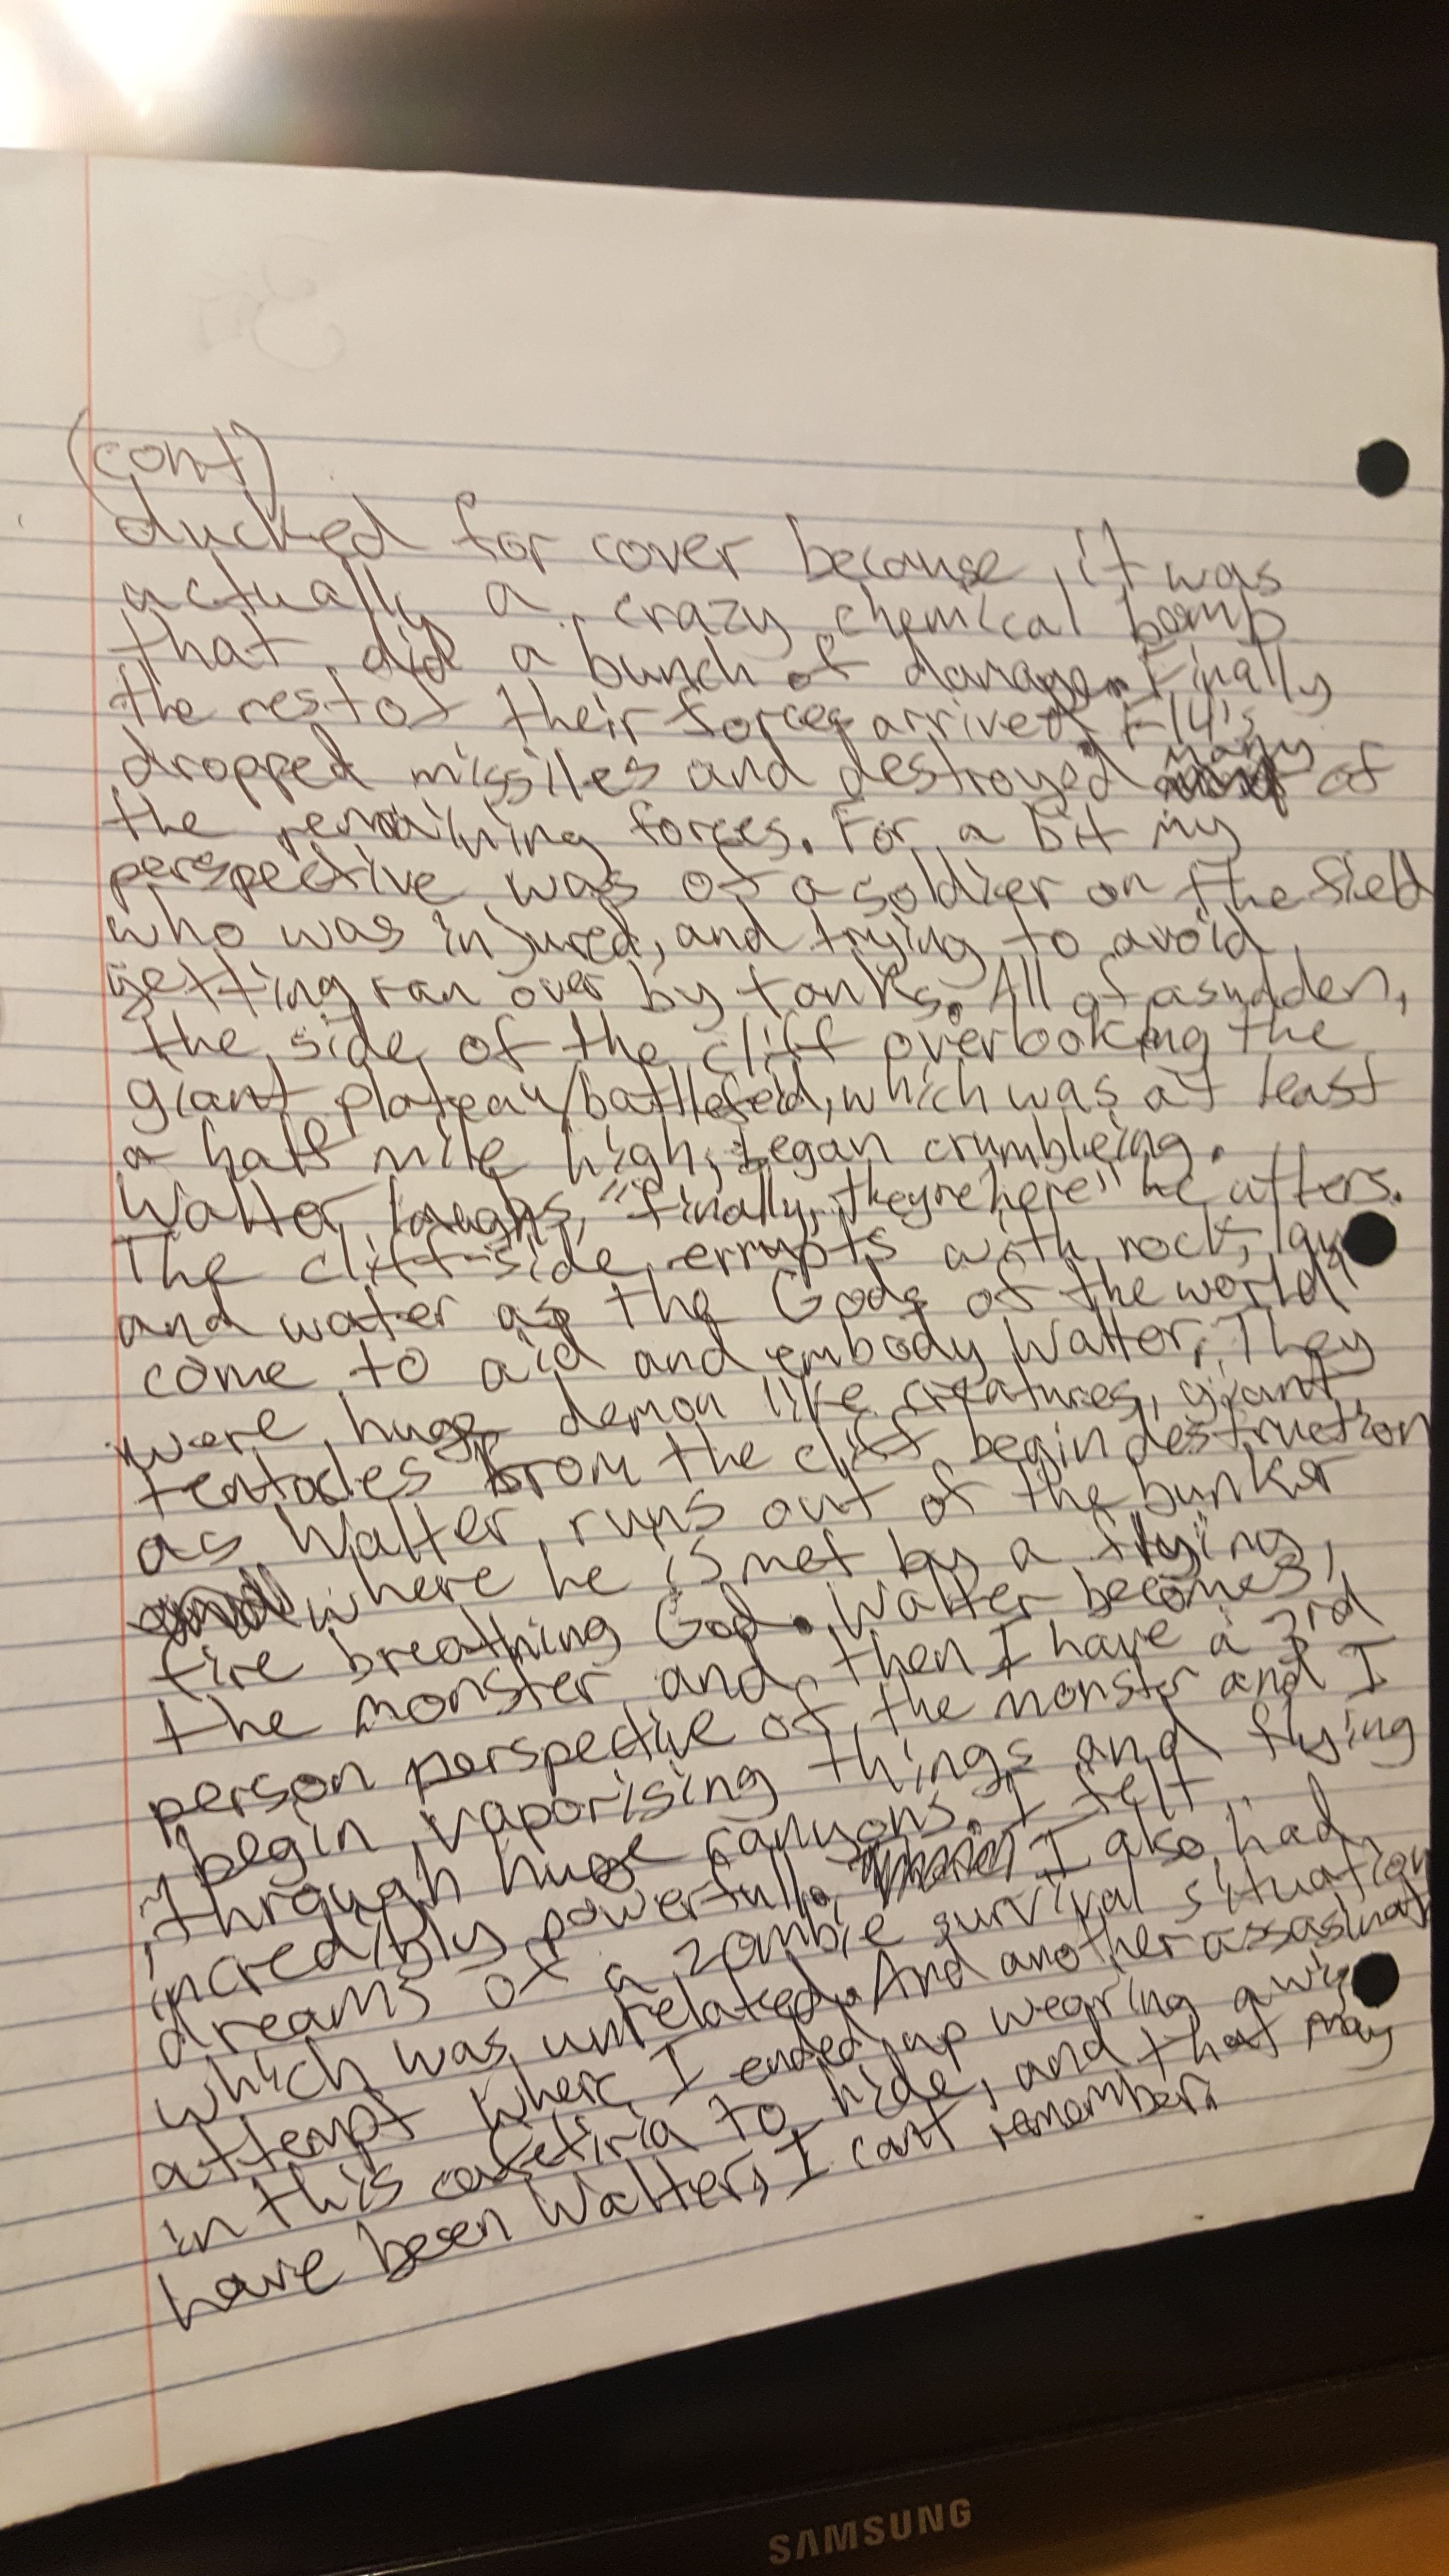 (cont)
ducked for cover because it was
actually a crazy chemical bomb
that did a bunch of damage. Finally
the rest of their forces arrived. F-14's
dropped missiles and destroyed many of
the remaining forces. For a bit my
perspective was of a soldier on the field
who was injured, and trying to avoid
getting ran over by tanks. All of a sudden,
the side of the cliff overlooking the
giant plateau/battlefeild, which was at least
a half mile high, began crumbleing.
Walter laughs, "finally, they're here" he utters.
The cliff-side errupts with rock,
and water as the Gods of the world
come to aid and embody Walter. They
were huge demon like creatures, giant
tentacles from the cliff begin destruction
as Walter runs out of the bunker
where he is met by a flying,
fire breathing God. Walter becomes
the monster and then I have a 3rd
person perspective of the monster and I
begin vaporising things and flying
through huge canyons. I felt
incredibly powerfull. I also had
dreams of a zombie survival situation
which was unrelated. And another assasinat
attempt where I ended up wearing a wig
in this cafetiria to hide, and that may
have been Walter, I cant remember.
SAMSUNG